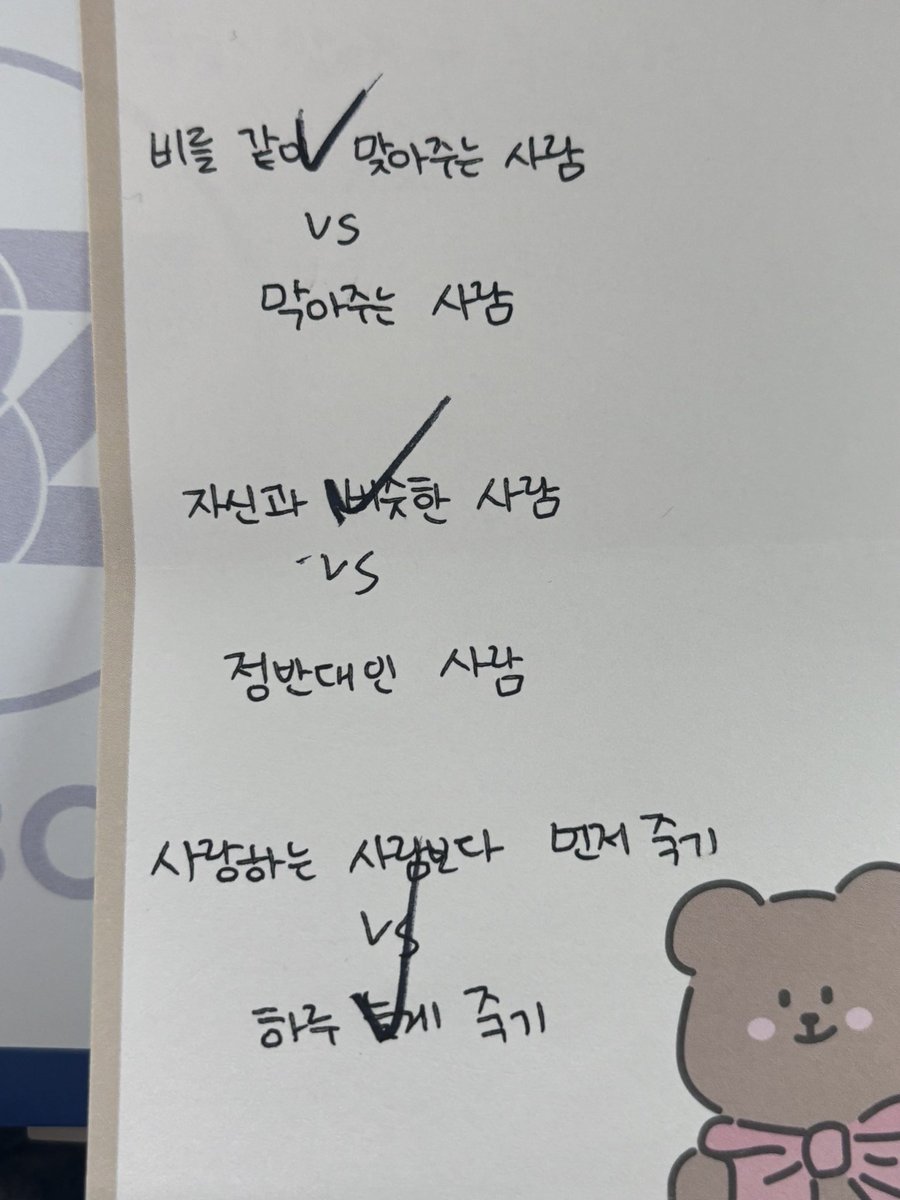 비를 같이 맞아주는 사람
vs
막아주는 사람
자신과 비슷한 사람
vs
정반대인 사람
사랑하는 사람보다 먼저 죽기
vs
하루 늦게 죽기